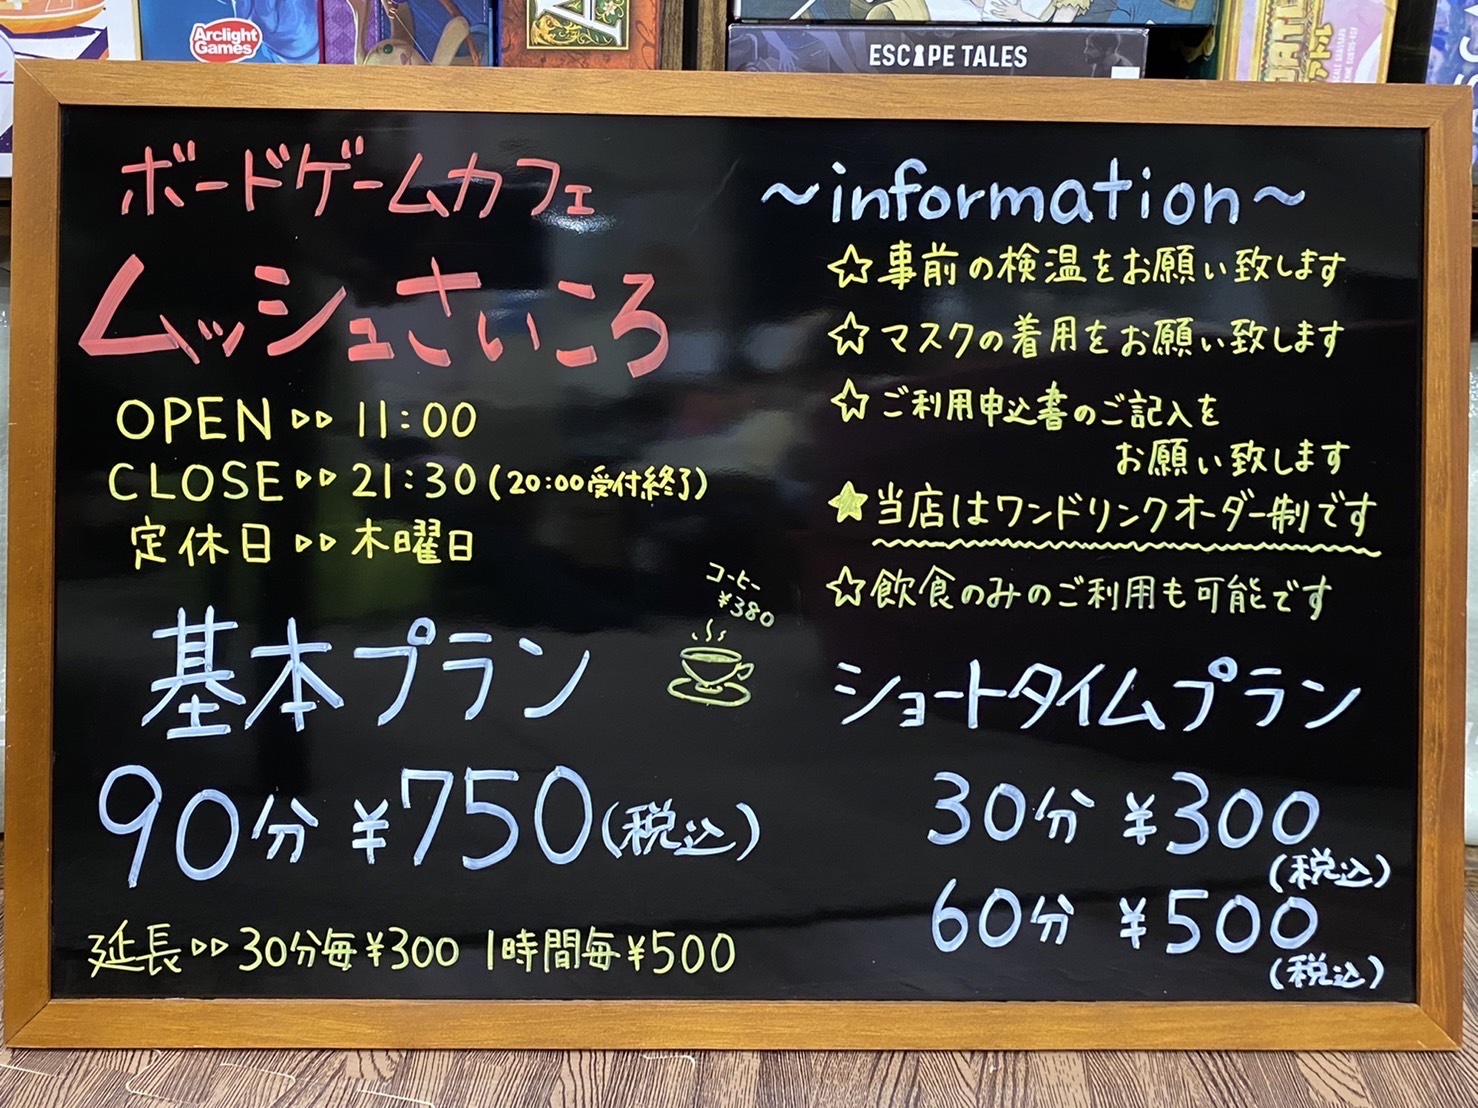 Arclight
Games
ESCAPE TALES
ボードゲームカフェ
ムッシュさいころ
OPEN ▷▷ 11:00
CLOSE ▷▷ 21:30 (20:00受付終了)
定休日 ▷▷ 木曜日
コーヒー
¥380
基本プラン
90分 ¥750(税込)
延長▷▷30分毎¥300 1時間毎¥500
~information~
☆事前の検温をお願い致します
☆マスクの着用をお願い致します
☆ご利用申込書のご記入を
お願い致します
★当店はワンドリンクオーダー制です
☆飲食のみのご利用も可能です
ショートタイムプラン
30分 ¥300
(税込)
60分 ¥500
(税込)